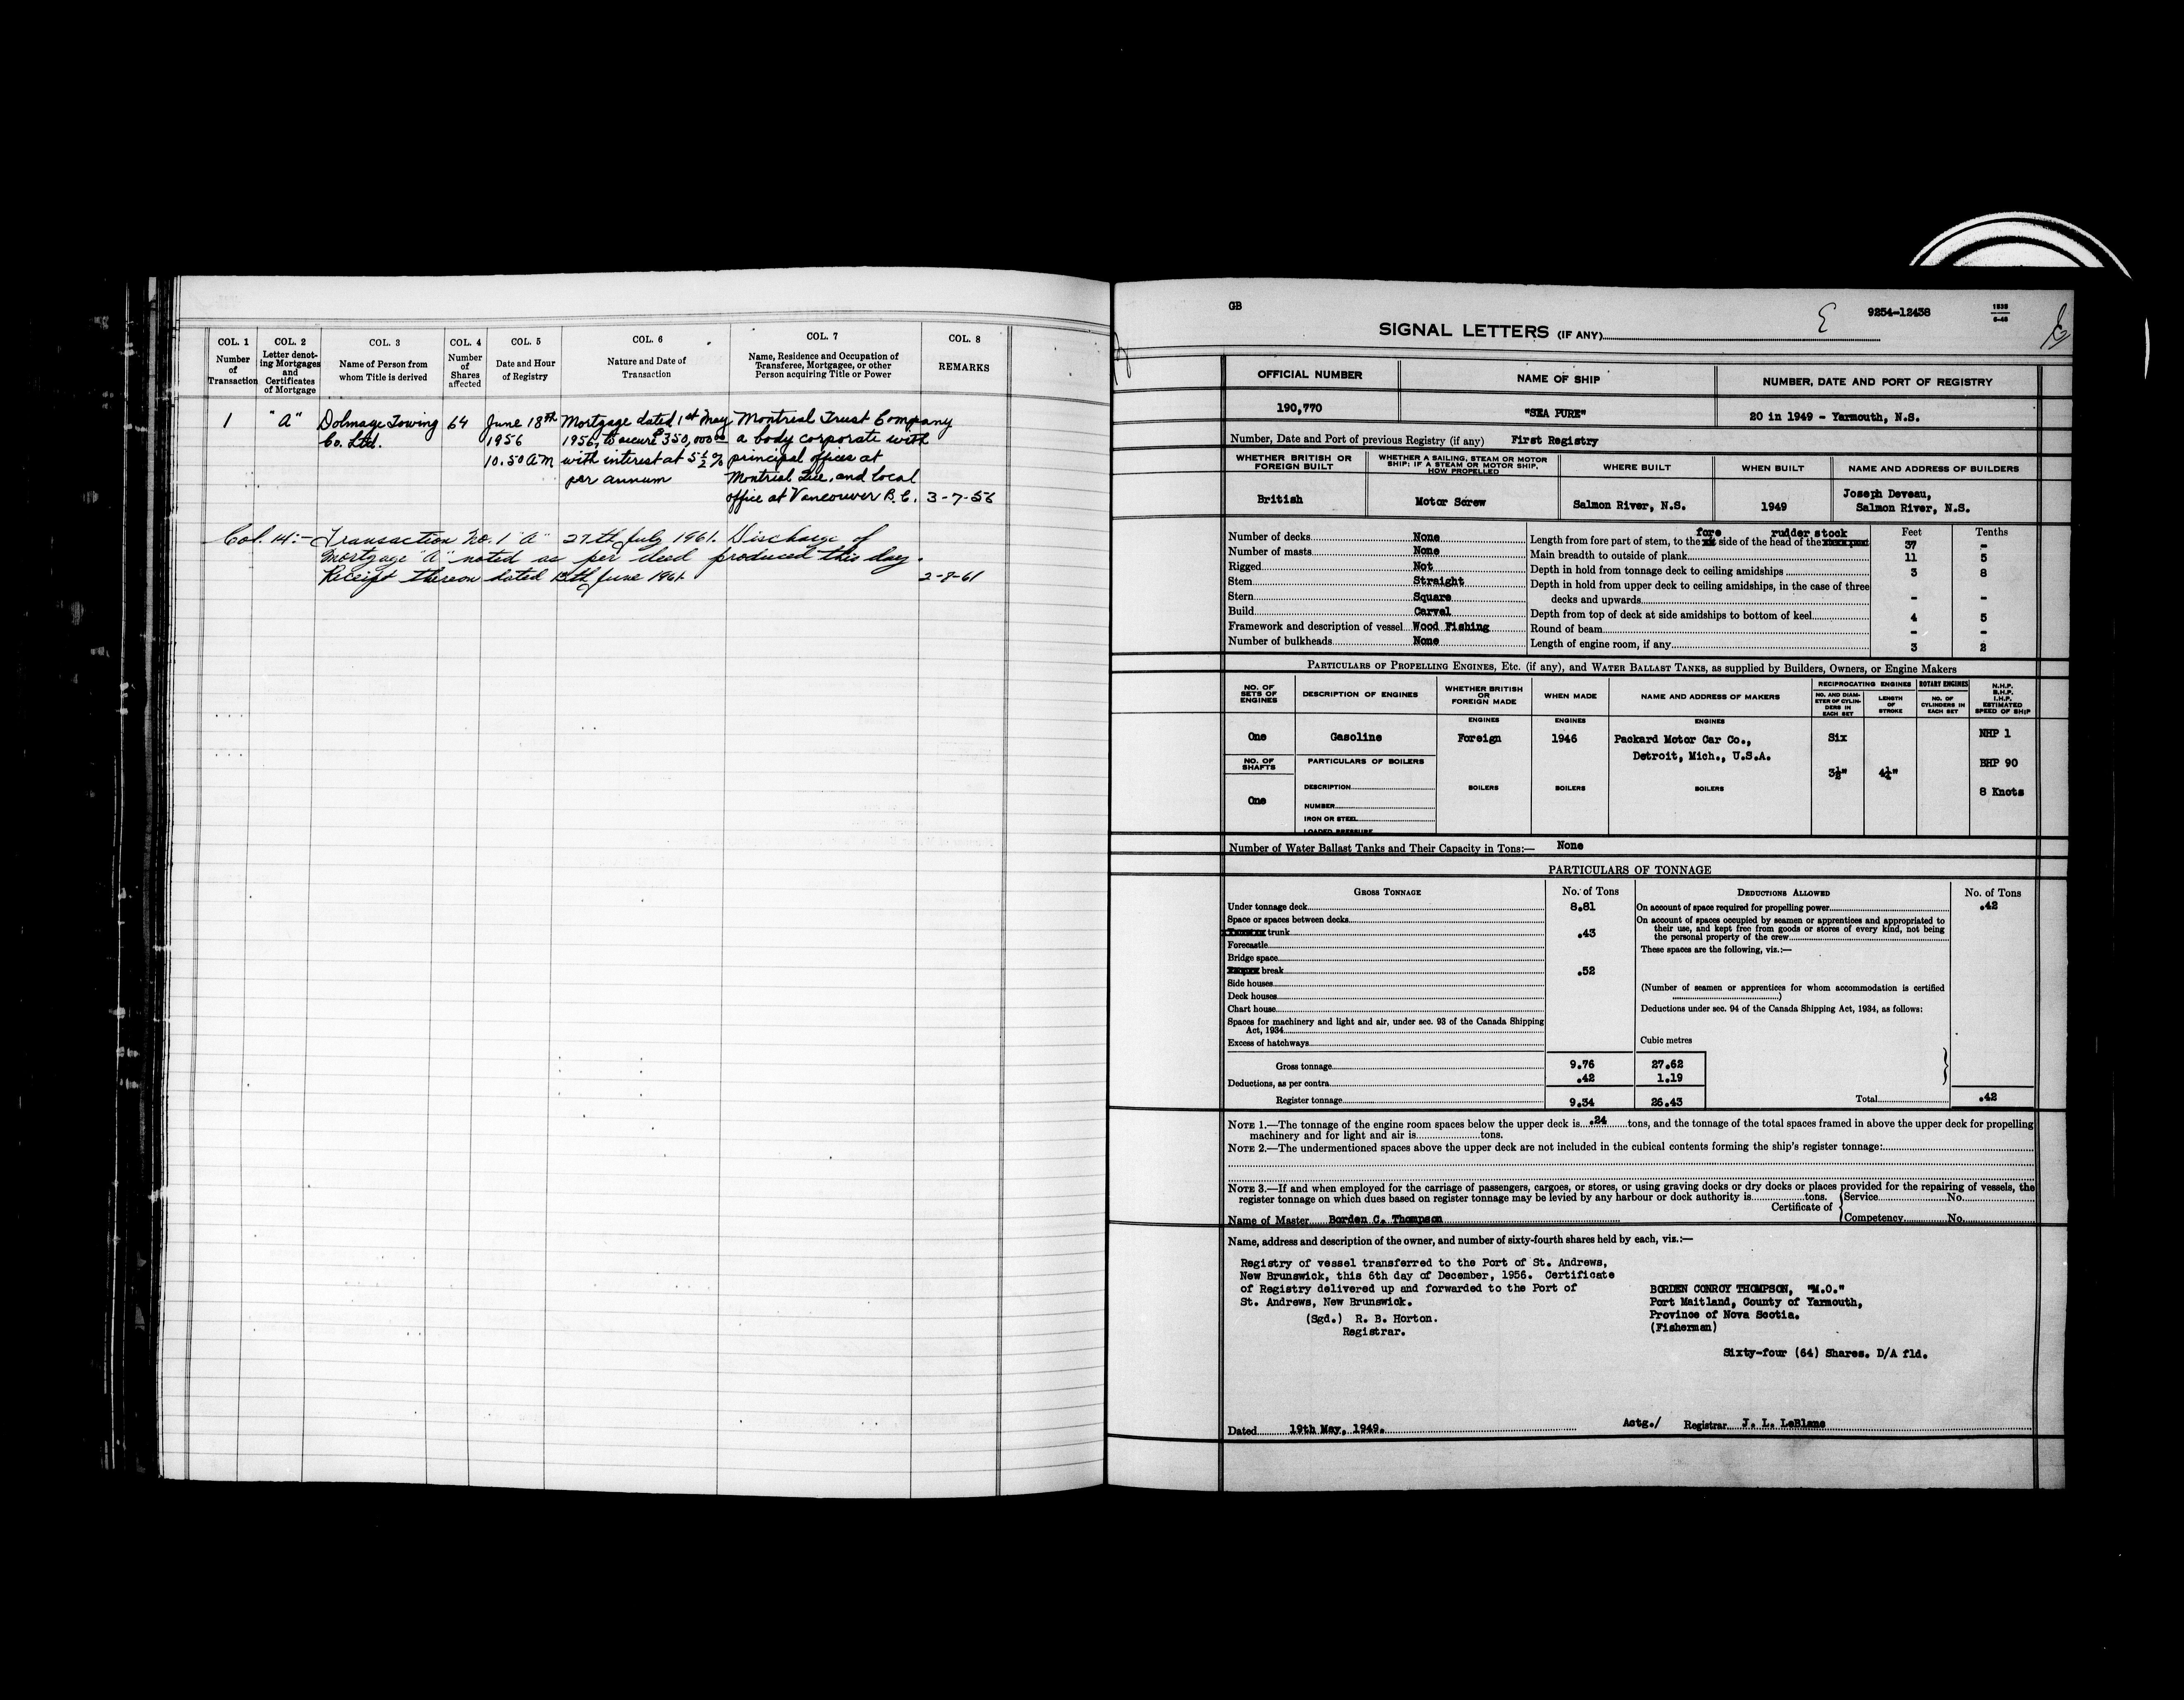 COL. 1 COL. 2 COL. 3 COL. 4 COL. 5 COL. 6 COL. 7 COL. 8
Number of Transaction
Letter denoting Mortgages and Certificates of Mortgage
Name of Person from whom Title is derived
Number of Shares affected
Date and Hour of Registry
Nature and Date of Transaction
Name, Residence and Occupation of Transferee, Mortgagee, or other Person acquiring Title or Power
REMARKS
1 "A" Dolmage Towing 64 June 18th Mortgage dated 1st May Montreal Trust Company
Co. Ltd. 1956 1956, to secure $350,000.00 a body corporate with
10.50 AM with interest at 5 1/2 % principal offices at
per annum Montreal Que. and local
office at Vancouver B.C. 3-7-56
Col. 14:- Transaction No. 1 "A" 27th July 1961. Discharge of
Mortgage "A" noted as per deed produced this day.
Receipt thereon dated 13th June 1961. 2-8-61
GB
9254-12438
SIGNAL LETTERS (IF ANY)
OFFICIAL NUMBER NAME OF SHIP NUMBER, DATE AND PORT OF REGISTRY
190,770 "SEA PURE" 20 in 1949 - Yarmouth, N.S.
Number, Date and Port of previous Registry (if any) First Registry
WHETHER BRITISH OR FOREIGN BUILT
WHETHER A SAILING, STEAM OR MOTOR SHIP: IF A STEAM OR MOTOR SHIP, HOW PROPELLED
WHERE BUILT WHEN BUILT NAME AND ADDRESS OF BUILDERS
British Motor Screw Salmon River, N.S. 1949 Joseph Deveau,
Salmon River, N.S.
Feet Tenths
Number of decks None
Number of masts None
Rigged Not
Stem Straight
Stern Square
Build Carvel
Framework and description of vessel Wood Fishing
Number of bulkheads None
fore rudder stock
Length from fore part of stem, to the side of the head of the 37 -
Main breadth to outside of plank 11 5
Depth in hold from tonnage deck to ceiling amidships 3 8
Depth in hold from upper deck to ceiling amidships, in the case of three
decks and upwards - -
Depth from top of deck at side amidships to bottom of keel 4 5
Round of beam - -
Length of engine room, if any 3 2
PARTICULARS OF PROPELLING ENGINES, Etc. (if any), and WATER BALLAST TANKS, as supplied by Builders, Owners, or Engine Makers
NO. OF SETS OF ENGINES
DESCRIPTION OF ENGINES
WHETHER BRITISH OR FOREIGN MADE
WHEN MADE
NAME AND ADDRESS OF MAKERS
RECIPROCATING ENGINES ROTARY ENGINES
NO. AND DIAMETER OF CYLINDERS IN EACH SET
LENGTH OF STROKE
NO. OF CYLINDERS IN EACH SET
N.H.P.
B.H.P.
I.H.P.
ESTIMATED SPEED OF SHIP
ENGINES ENGINES ENGINES
One Gasoline Foreign 1946 Packard Motor Car Co., Six NHP 1
Detroit, Mich., U.S.A.
NO. OF SHAFTS PARTICULARS OF BOILERS BHP 90
3½" 4¼"
DESCRIPTION BOILERS BOILERS BOILERS
One 8 Knots
NUMBER
IRON OR STEEL
LOADED PRESSURE
Number of Water Ballast Tanks and Their Capacity in Tons:— None
PARTICULARS OF TONNAGE
GROSS TONNAGE No. of Tons DEDUCTIONS ALLOWED No. of Tons
Under tonnage deck 8.81
Space or spaces between decks
trunk .43
Forecastle
Bridge space
break .52
Side houses
Deck houses
Chart house
Spaces for machinery and light and air, under sec. 93 of the Canada Shipping
Act, 1934
Excess of hatchways
Gross tonnage 9.76 27.62
Deductions, as per contra .42 1.19
Register tonnage 9.34 26.43
On account of space required for propelling power .42
On account of spaces occupied by seamen or apprentices and appropriated to
their use, and kept free from goods or stores of every kind, not being
the personal property of the crew
These spaces are the following, viz.:—
(Number of seamen or apprentices for whom accommodation is certified
)
Deductions under sec. 94 of the Canada Shipping Act, 1934, as follows:
Cubic metres
Total .42
NOTE 1.—The tonnage of the engine room spaces below the upper deck is .24 tons, and the tonnage of the total spaces framed in above the upper deck for propelling
machinery and for light and air is tons.
NOTE 2.—The undermentioned spaces above the upper deck are not included in the cubical contents forming the ship's register tonnage:
NOTE 3.—If and when employed for the carriage of passengers, cargoes, or stores, or using graving docks or dry docks or places provided for the repairing of vessels, the
register tonnage on which dues based on register tonnage may be levied by any harbour or dock authority is tons.
Certificate of Service No.
Competency No.
Name of Master Borden C. Thompson
Name, address and description of the owner, and number of sixty-fourth shares held by each, viz.:—
Registry of vessel transferred to the Port of St. Andrews,
New Brunswick, this 6th day of December, 1956. Certificate
of Registry delivered up and forwarded to the Port of
St. Andrews, New Brunswick.
(Sgd.) R. B. Horton.
Registrar.
BORDEN CONROY THOMPSON, "M.O."
Port Maitland, County of Yarmouth,
Province of Nova Scotia.
(Fisherman)
Sixty-four (64) Shares. D/A fld.
Dated 19th May, 1949. Actg./ Registrar J. L. LeBlanc